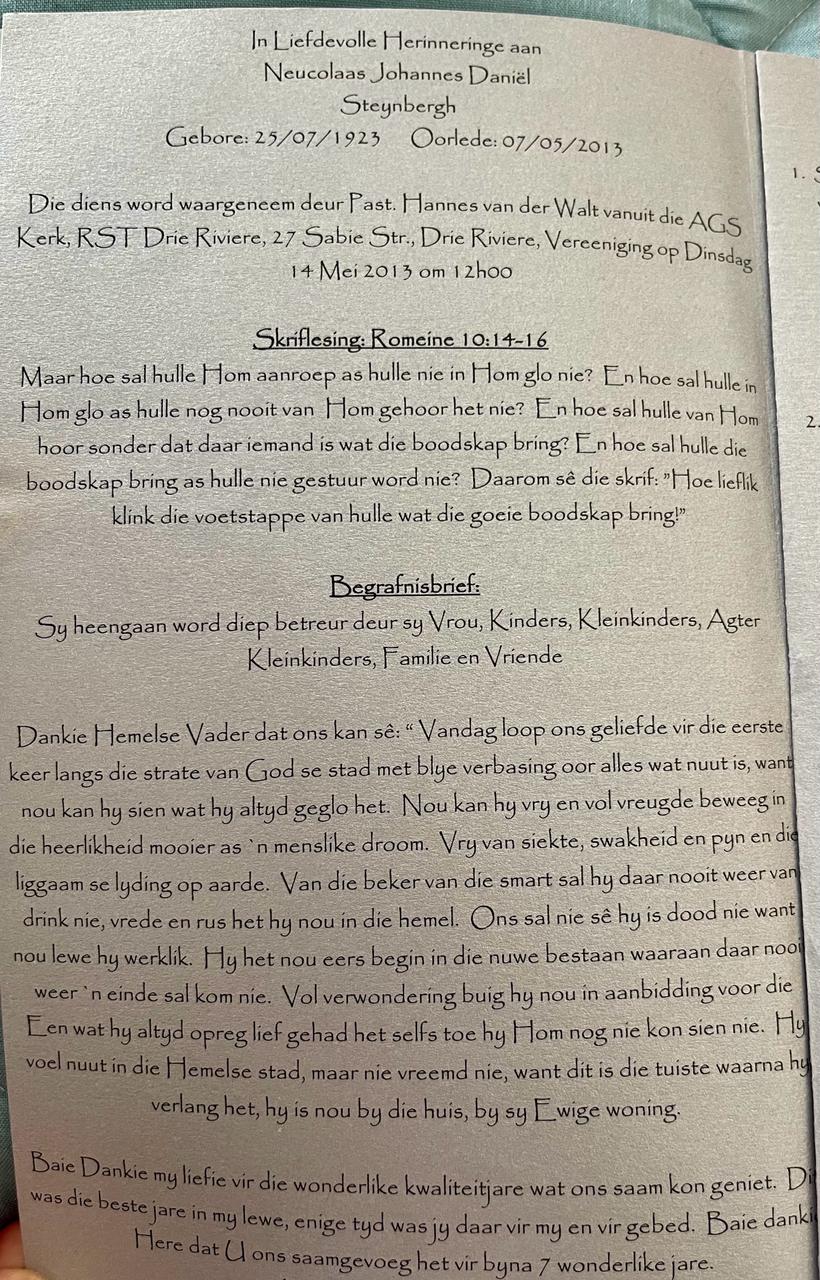 In Liefdevolle Herinneringe aan
Neucolaas Johannes Daniël
Steynbergh
Gebore: 25/07/1923 Oorlede: 07/05/2013
Die diens word waargeneem deur Past. Hannes van der Walt vanuit die AGS
Kerk, RST Drie Riviere, 27 Sabie Str., Drie Riviere, Vereeniging op Dinsdag
14 Mei 2013 om 12h00
Skriflesing: Romeine 10:14-16
Maar hoe sal hulle Hom aanroep as hulle nie in Hom glo nie? En hoe sal hulle in
Hom glo as hulle nog nooit van Hom gehoor het nie? En hoe sal hulle van Hom
hoor sonder dat daar iemand is wat die boodskap bring? En hoe sal hulle die
boodskap bring as hulle nie gestuur word nie? Daarom sê die skrif: ”Hoe lieflik
klink die voetstappe van hulle wat die goeie boodskap bring!”
Begrafnisbrief:
Sy heengaan word diep betreur deur sy Vrou, Kinders, Kleinkinders, Agter
Kleinkinders, Familie en Vriende
Dankie Hemelse Vader dat ons kan sê: “ Vandag loop ons geliefde vir die eerste
keer langs die strate van God se stad met blye verbasing oor alles wat nuut is, want
nou kan hy sien wat hy altyd geglo het. Nou kan hy vry en vol vreugde beweeg in
die heerlikheid mooier as `n menslike droom. Vry van siekte, swakheid en pyn en die
liggaam se lyding op aarde. Van die beker van die smart sal hy daar nooit weer van
drink nie, vrede en rus het hy nou in die hemel. Ons sal nie sê hy is dood nie want
nou lewe hy werklik. Hy het nou eers begin in die nuwe bestaan waaraan daar nooi
weer `n einde sal kom nie. Vol verwondering buig hy nou in aanbidding voor die
Een wat hy altyd opreg lief gehad het selfs toe hy Hom nog nie kon sien nie. Hy
voel nuut in die Hemelse stad, maar nie vreemd nie, want dit is die tuiste waarna hy
verlang het, hy is nou by die huis, by sy Ewige woning.
Baie Dankie my liefie vir die wonderlike kwaliteitjare wat ons saam kon geniet. Di
was die beste jare in my lewe, enige tyd was jy daar vir my en vir gebed. Baie danki
Here dat U ons saamgevoeg het vir byna 7 wonderlike jare.
1.
2.